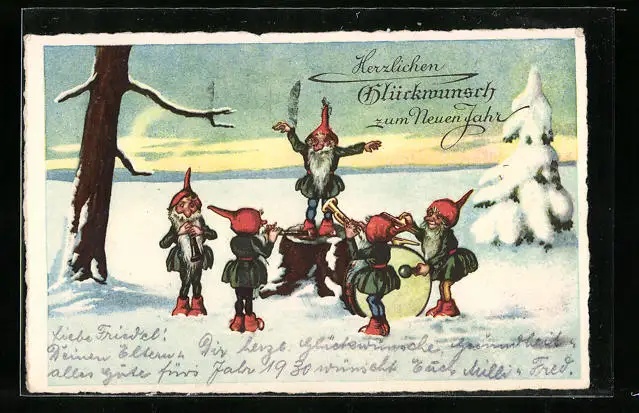 Herzlichen
Glückwunsch
zum Neuen Jahr
Liebe Friedel!
Deinen Eltern u. Dir herzl. Glückwünsche Gesundheit u.
alles Gute fürs Jahr 1930 wünscht Euch Milli u. Fred.